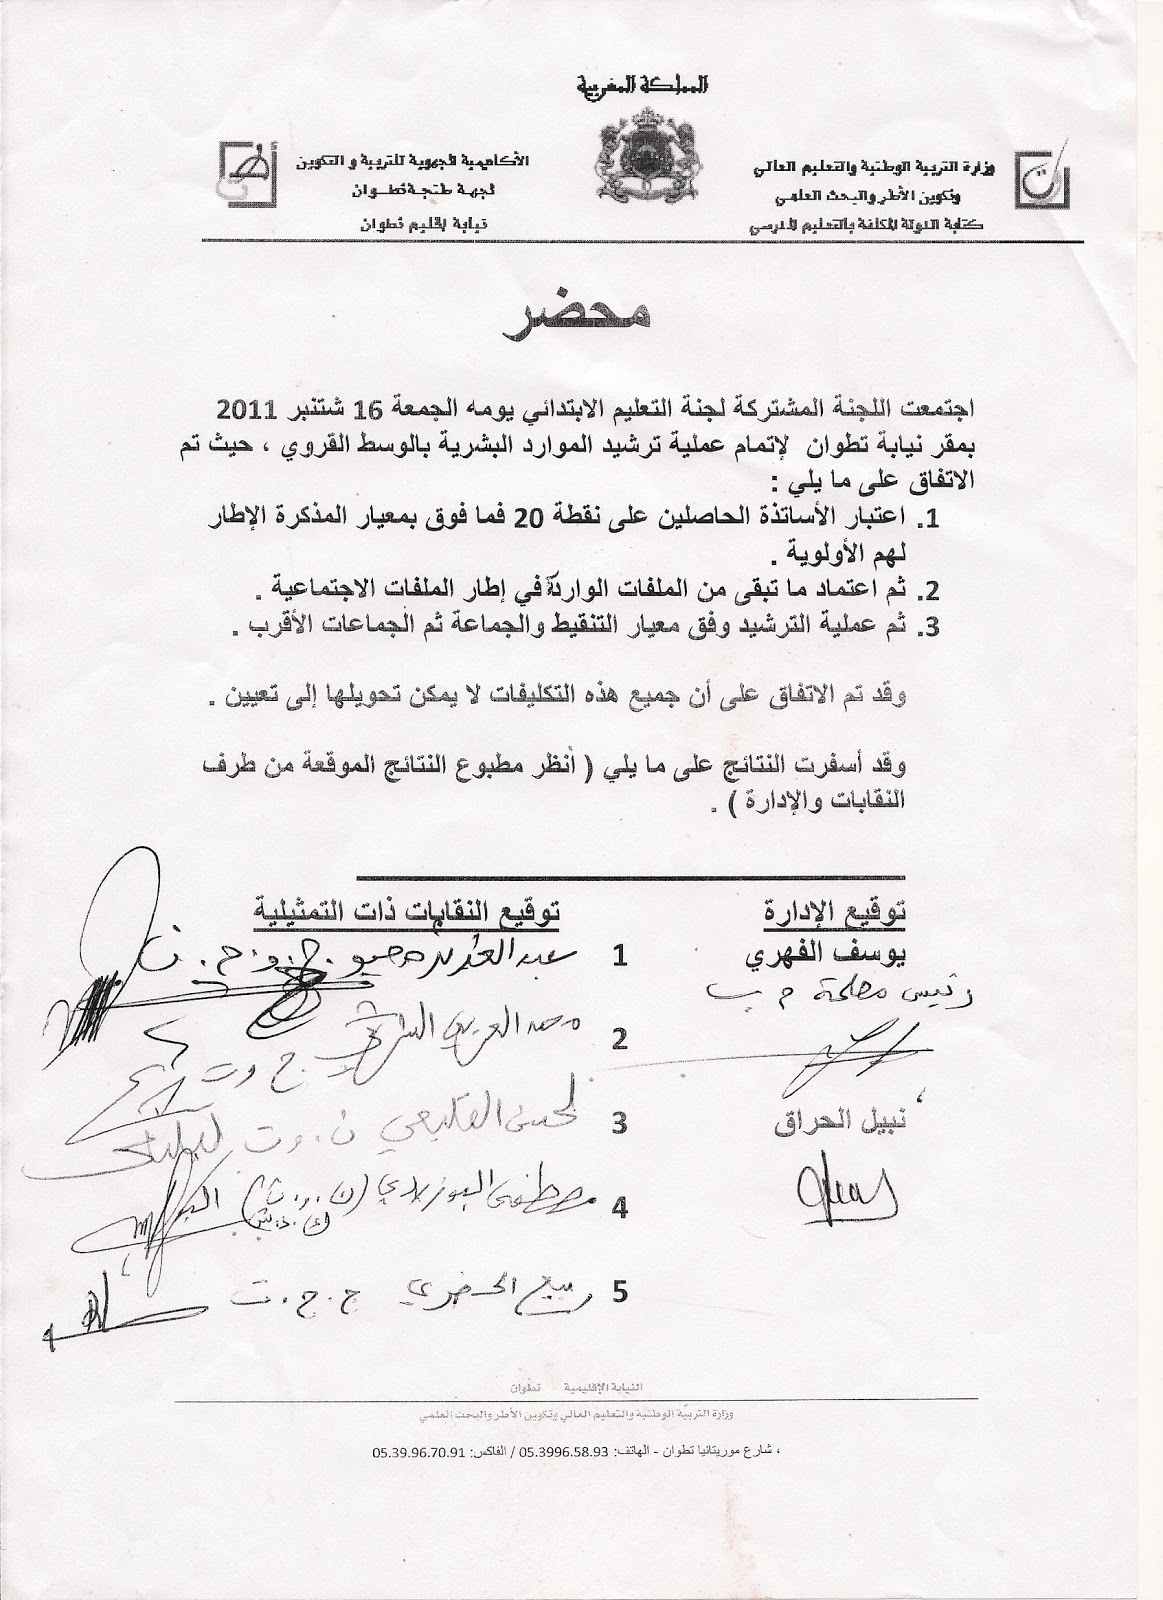 المملكة المغربية
وزارة التربية الوطنية والتعليم العالي
وتكوين الأطر والبحث العلمي
كتابة الدولة المكلفة بالتعليم المدرسي
الأكاديمية الجهوية للتربية و التكوين
لجهة طنجة تطوان
نيابة إقليم تطوان
محضر
اجتمعت اللجنة المشتركة لجنة التعليم الابتدائي يومه الجمعة 16 شتنبر 2011
بمقر نيابة تطوان لإتمام عملية ترشيد الموارد البشرية بالوسط القروي ، حيث تم
الاتفاق على ما يلي :
1. اعتبار الأساتذة الحاصلين على نقطة 20 فما فوق بمعيار المذكرة الإطار
لهم الأولوية .
2. ثم اعتماد ما تبقى من الملفات الواردة في إطار الملفات الاجتماعية .
3. ثم عملية الترشيد وفق معيار التنقيط والجماعة ثم الجماعات الأقرب .
وقد تم الاتفاق على أن جميع هذه التكليفات لا يمكن تحويلها إلى تعيين .
وقد أسفرت النتائج على ما يلي ( أنظر مطبوع النتائج الموقعة من طرف
النقابات والإدارة ) .
توقيع الإدارة
يوسف الفهري
رئيس مصلحة م ب
نبيل الحراق
توقيع النقابات ذات التمثيلية
1 عبد العزيز
2 محمد العربي
3 لحسن القليعي ن.و.ت
4 مصطفى البوزيدي
5 ربيع الخضري ج.ح.ت
النيابة الإقليمية - تطوان
وزارة التربية الوطنية والتعليم العالي وتكوين الأطر والبحث العلمي
، شارع موريتانيا تطوان - الهاتف: 05.3996.58.93 / الفاكس: 05.39.96.70.91